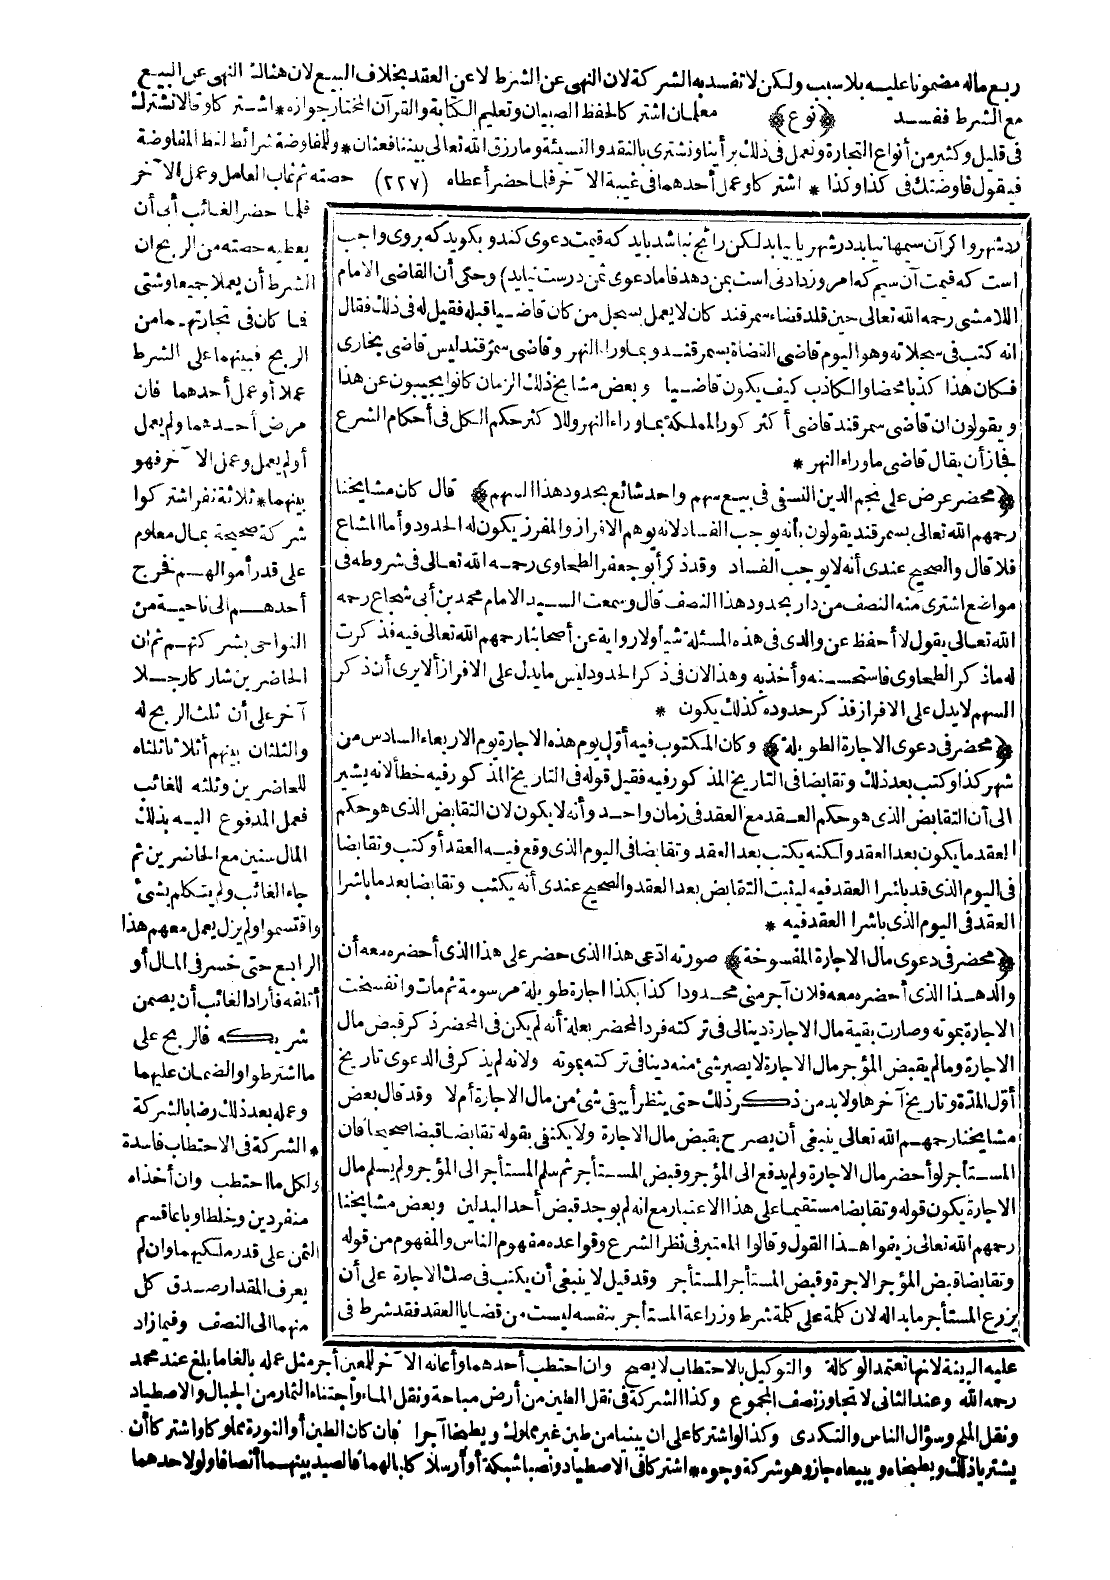 ربع ماله مضمونا عليه بلا سبب ولكن لا تفسد به الشركة لان النهى عن الشرط لا عن العقد بخلاف البيع لان هنالك النهى عن البيع
مع الشرط ففسد ﴿نوع﴾ معلمان اشتركا لحفظ الصبيان وتعليم الكتابة والقرآن المختار جوازه * اشتركا وقالا نشترك
فى قليل وكثير من أنواع التجارة ونعمل فى ذلك برأينا ونشترى بالنقد والنسيئة وما رزق الله تعالى بيننا فعنان * وللمفاوضة شرائط لفظ المفاوضة
فيقول فاوضتك فى كذا وكذا * اشتركا وعمل أحدهما فى غيبة الآخر فلما حضر أعطاه (٢٢٧) حصته ثم غاب العامل وعمل الآخر
فلما حضر الغائب أبى أن
يعطيه حصته من الربح ان
الشرط أن يعملا جميعا وشتى
فما كان فى تجارتهما من
الربح فبينهما على الشرط
عملا أو عمل أحدهما فان
مرض أحدهما ولم يعمل
أو لم يعمل وعمل الآخر فهو
بينهما * ثلاثة نفر اشتركوا
شركة صحيحة بمال معلوم
على قدر أموالهم فخرج
أحدهم الى ناحية من
النواحى بشركتهم ثم ان
الحاضرين شاركا رجلا
آخر على أن ثلث الربح له
والثلثان بينهم أثلاثا ثلثاه
للحاضرين وثلثه للغائب
فعمل المدفوع اليه بذلك
المال سنين مع الحاضرين ثم
جاء الغائب ولم يتكلم بشئ
واقتسموا ولم يزل يعمل معهم هذا
الرابع حتى خسر فى المال أو
أتلفه فأراد الغائب أن يضمن
شريكه فالربح على
ما اشترطوا والضمان عليهما
وعمله بعد ذلك رضا بالشركة
* الشركة فى الاحتطاب فاسدة
ولكل ما احتطب وان أخذاه
منفردين وخلطا وباعا قسم
الثمن على قدر ملكيهما وان لم
يعرف المقدار صدق كل
منهما الى النصف وفيما زاد
رد شهر واكر آن سيمها نيابد در شهر يا بيابد لكن رائج نباشد بايد كه قيمت دعوى كند وبكويد كه بروى واجب
است كه قيمت آن سيم كه امروز دادنى است بمن دهد فاما دعوى ثمن درست نيايد) وحكى أن القاضى الامام
اللامشى رحمه الله تعالى حين قلد قضاء سمرقند كان لا يعمل بسجل من كان قاضيا قبله فقيل له فى ذلك فقال
انه كتب فى سجلاته وهو اليوم قاضى القضاة بسمرقند وبما وراء النهر وقاضى سمرقند ليس قاضى بخارى
فكان هذا كذبا محضا والكاذب كيف يكون قاضيا وبعض مشايخ ذلك الزمان كانوا يجيبون عن هذا
ويقولون ان قاضى سمرقند قاضى أكثر كور المملكة بما وراء النهر وللاكثر حكم الكل فى أحكام الشرع
فجاز أن يقال قاضى ما وراء النهر *
﴿محضر عرض على نجم الدين النسفى فى بيع سهم واحد شائع بحدود هذا السهم﴾ قال كان مشايخنا
رحمهم الله تعالى بسمرقند يقولون بأنه يوجب الفساد لانه يوهم الافراز والمفرز يكون له الحدود وأما المشاع
فلا قال والصحيح عندى أنه لا يوجب الفساد وقد ذكر أبو جعفر الطحاوى رحمه الله تعالى فى شروطه فى
مواضع اشترى منه النصف من دار بحدود هذا النصف قال وسمعت السيد الامام محمد بن أبى شجاع رحمه
الله تعالى يقول لا أحفظ عن والدى فى هذه المسئلة شيأ ولا رواية عن أصحابنا رحمهم الله تعالى فيه فذكرت
له ما ذكر الطحاوى فاستحسنه وأخذ به وهذا لان فى ذكر الحدود ليس ما يدل على الافراز ألا يرى أن ذكر
السهم لا يدل على الافراز فذكر حدوده كذلك يكون *
﴿محضر فى دعوى الاجارة الطويلة﴾ وكان المكتوب فيه أول يوم هذه الاجارة يوم الاربعاء السادس من
شهر كذا وكتب بعد ذلك وتقابضا فى التاريخ المذكور فيه فقيل قوله فى التاريخ المذكور فيه خطأ لانه يشير
الى أن التقابض الذى هو حكم العقد مع العقد فى زمان واحد وأنه لا يكون لان التقابض الذى هو حكم
العقد ما يكون بعد العقد ولكنه يكتب بعد العقد وتقابضا فى اليوم الذى وقع فيه العقد أو كتب وتقابضا
فى اليوم الذى قد باشرا العقد فيه ليثبت التقابض بعد العقد والصحيح عندى أنه يكتب وتقابضا بعد ما باشرا
العقد فى اليوم الذى باشرا العقد فيه *
﴿محضر فى دعوى مال الاجارة المفسوخة﴾ صورته ادعى هذا الذى حضر على هذا الذى أحضره معه أن
والد هذا الذى أحضره معه فلان آجر منى محدودا كذا بكذا اجارة طويلة مرسومة ثم مات وانفسخت
الاجارة بموته وصارت بقية مال الاجارة دينا لى فى تركته فرد المحضر بعلة أنه لم يكن فى المحضر ذكر قبض مال
الاجارة وما لم يقبض المؤجر مال الاجارة لا يصير شئ منه دينا فى تركته بموته ولانه لم يذكر فى الدعوى تاريخ
أول المدة وتاريخ آخرها ولا بد من ذكر ذلك حتى ينظر أيبقى شئ من مال الاجارة أم لا وقد قال بعض
مشايخنا رحمهم الله تعالى ينبغى أن يصرح بقبض مال الاجارة ولا يكتفى بقوله تقابضا قبضا صحيحا فان
المستأجر لو أحضر مال الاجارة ولم يدفع الى المؤجر وقبض المستأجر ثم سلم المستأجر الى المؤجر ولم يسلم مال
الاجارة يكون قوله وتقابضا مستقيما على هذا الاعتبار مع انه لم يوجد قبض أحد البدلين وبعض مشايخنا
رحمهم الله تعالى زيفوا هذا القول وقالوا المعتبر فى نظر الشرع وقواعده مفهوم الناس والمفهوم من قوله
وتقابضا قبض المؤجر الاجرة وقبض المستأجر المستأجر وقد قيل لا ينبغى أن يكتب فى صك الاجارة على أن
يزرع المستأجر ما بدا له لان كلمة على كلمة شرط وزراعة المستأجر بنفسه ليست من قضايا العقد فقد شرط فى
عليه البينة لانها تعتمد الوكالة والتوكيل بالاحتطاب لا يصح وان احتطب أحدهما وأعانه الآخر للمعين أجر مثل عمله بالغا ما بلغ عند محمد
رحمه الله وعند الثانى لا تجاوز نصف المجموع وكذا الشركة فى نقل الطين من أرض مباحة ونقل الماء واجتناء الثمار من الجبال والاصطياد
ونقل الملح وسؤال الناس والتكدى وكذا لو اشتركا على ان يبنيا من طين غير مملوك ويطبخا آجرا فان كان الطين أو النورة مملوكا واشتركا أن
يشتريا ذلك ويطبخاه ويبيعاه جاز وهو شركة وجوه * اشتركا فى الاصطياد ونصبا شبكة أو أرسلا كلبا لهما فالصيد بينهما أنصافا ولو لاحدهما